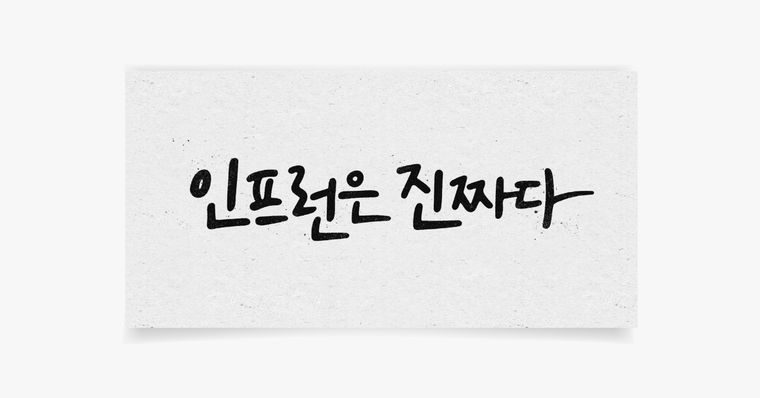 인프런은 진짜다